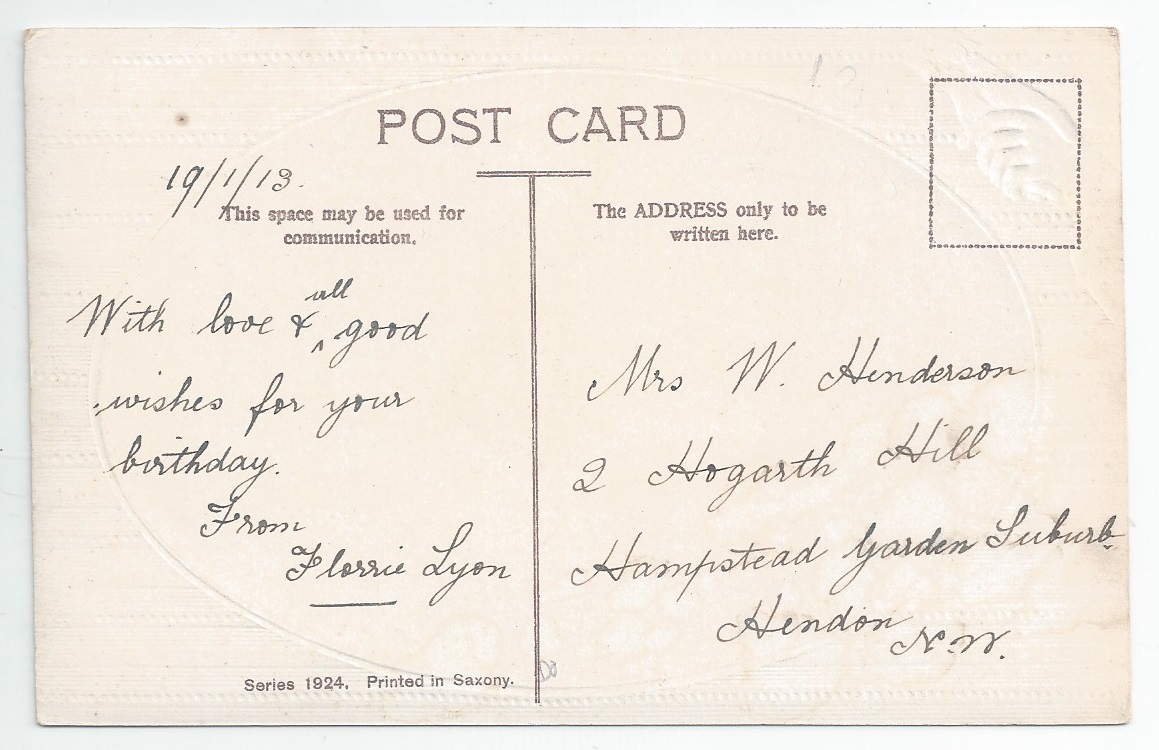 POST CARD
19/1/13.
This space may be used for
communication.
With love & all good
wishes for your
birthday.
From
Florrie Lyon
The ADDRESS only to be
written here.
Mrs W. Henderson
2 Hogarth Hill
Hampstead Garden Suburb
Hendon
N.W.
Series 1924. Printed in Saxony.